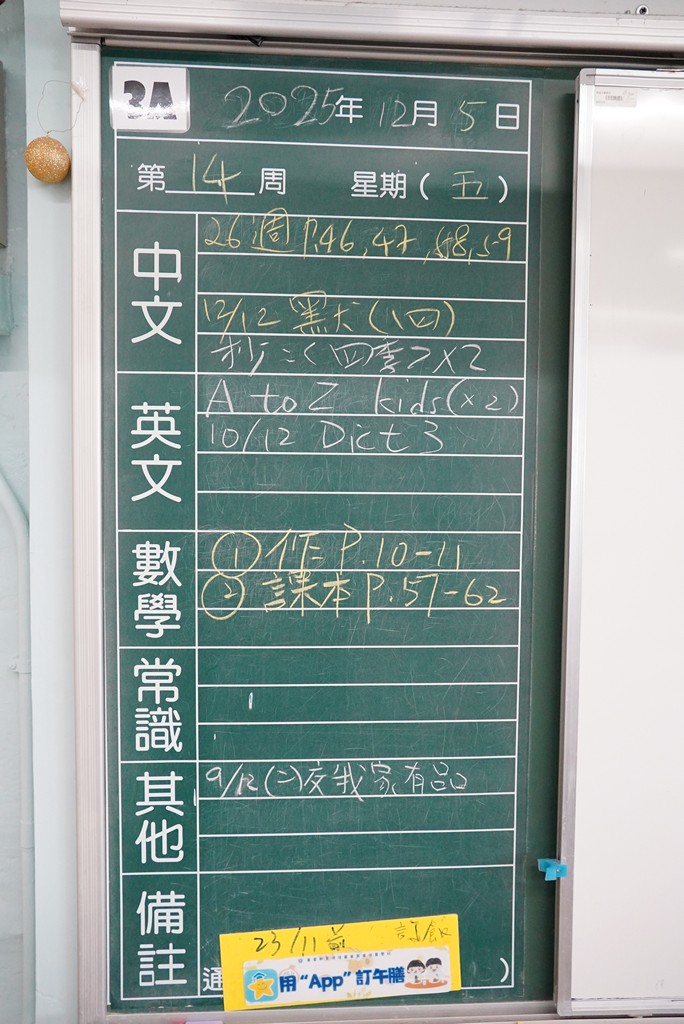 3A 2025年12月5日
第14周 星期(五)
中文
26週 P.46,47,58,59
12/12 黑犬(四)
四季2×2
英文
A to Z kids(×2)
10/12 Dict 3
數學
①作 P.10-11
②課本 P.57-62
常識
其他
9/12(二)交我家有品
備註
23/11前 訂飯
用“App”訂午膳
通 )